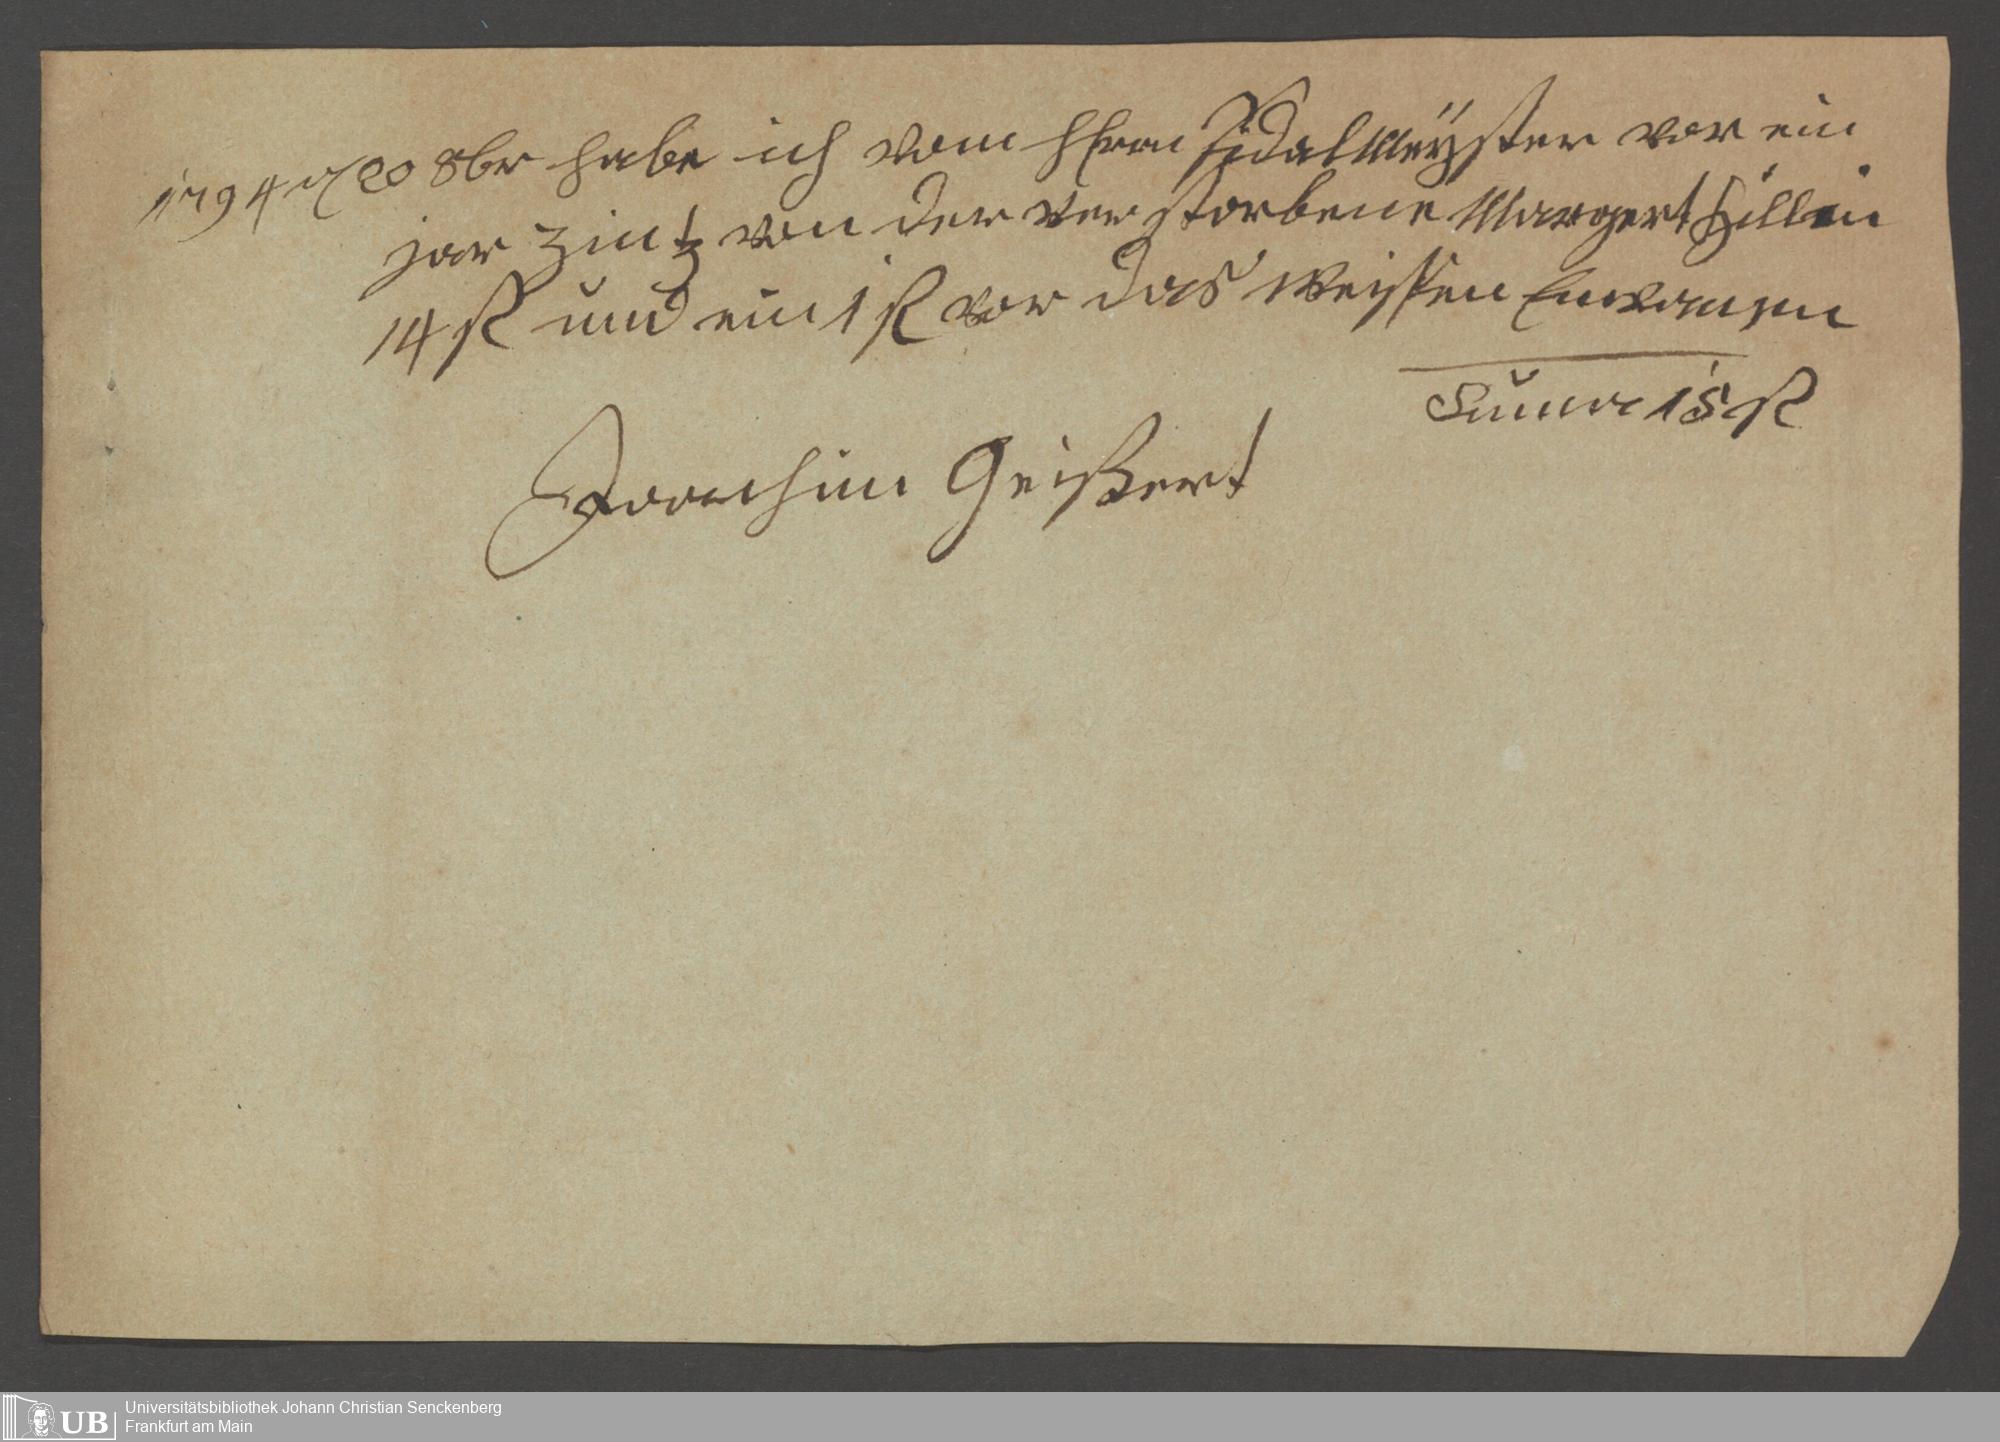 1794 d 20 8br habe ich vom HErrn Sidalmeÿster vor ein
jar zintz von der verstorbene Margert Hillin
14 fl und ein 1 fl vor das weissen
Suma 15 fl
Joachim Geißert
Universitätsbibliothek Johann Christian Senckenberg
Frankfurt am Main
UB